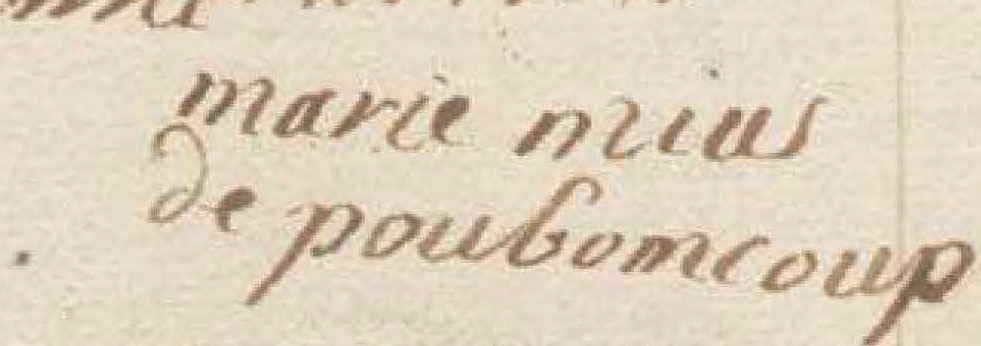 marie mius
de poubomcoup